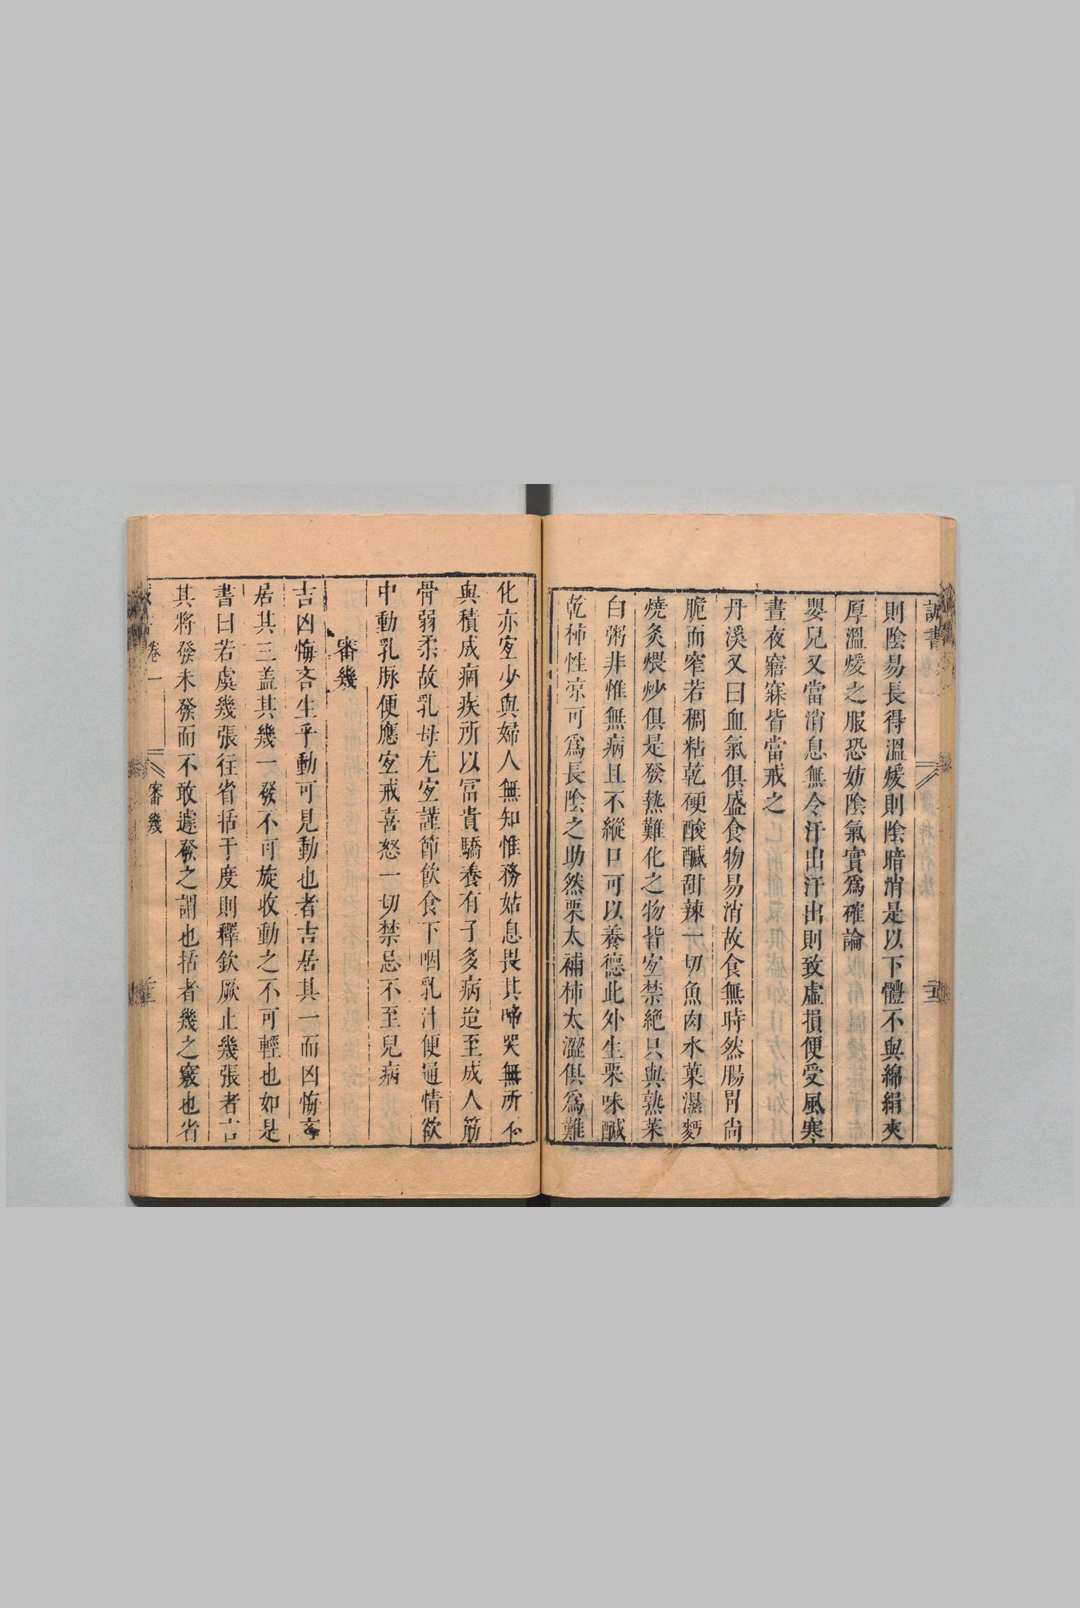 則陰易長得溫煖則陰暗消是以下體不與綿絹夾
厚溫煖之服恐妨陰氣實爲確論
嬰兒又當消息無令汗出汗出則致虛損便受風寒
晝夜寤寐皆當戒之
丹溪又曰血氣俱盛食物易消故食無時然腸胃尙
脆而窄若稠粘乾硬酸鹹甜辣一切魚肉水菓濕麪
燒炙煨炒俱是發熱難化之物皆宐禁絶只與熟菜
白粥非惟無病且不縱口可以養德此外生栗味鹹
乾柿性凉可爲長陰之助然栗太補柿太澀俱爲難
化亦宐少與婦人無知惟務姑息畏其啼哭無所不
與積成痼疾所以富貴驕養有子多病迨至成人筋
骨弱柔故乳母尤宐謹節飮食下咽乳汁便通情欲
中動乳脉便應宐戒喜怒一切禁忌不至兒病
審幾
吉凶悔吝生乎動可見動也者吉居其一而凶悔吝
居其三盖其幾一發不可旋收動之不可輕也如是
書曰若虞幾張徃省括于度則釋欽厥止幾張者言
其將發未發而不敢遽發之謂也括者幾之竅也省
卷一
審幾